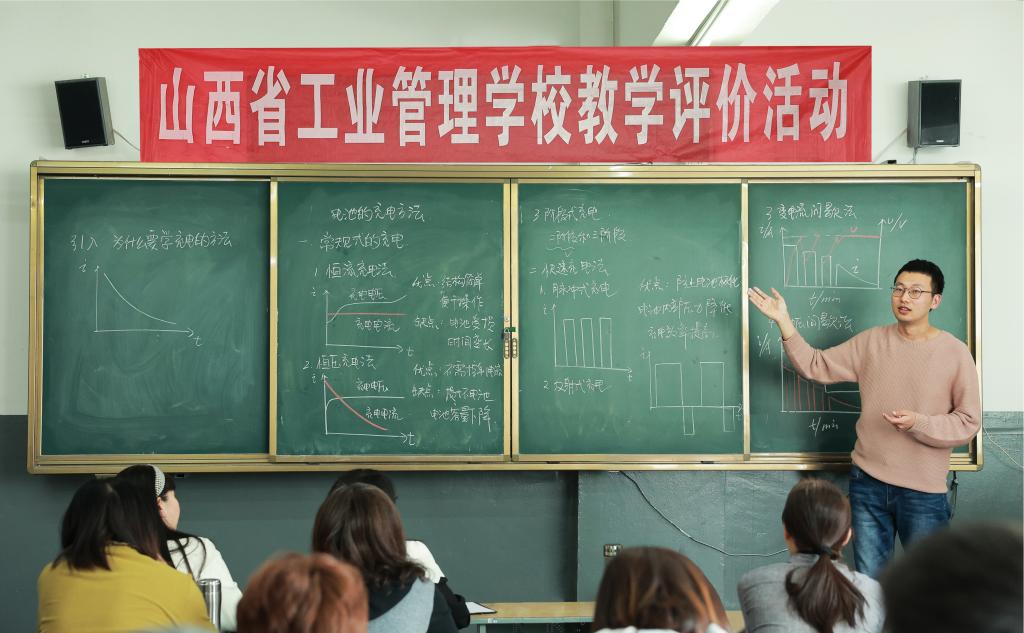 山西省工业管理学校教学评价活动
引入 为什么要学充电的方法
i
t
电池的充电方法
一、常规式的充电
1.恒流充电法
i
充电电压
充电电流
t
优点：结构简单
易于操作
缺点：
时间变长
2.恒压充电法
i
充电电压
充电电流
t
优点：
缺点：损坏电池
电池容量下降
3阶段式充电
二阶段和三阶段
二 快速充电法
1.脉冲式充电
i
t
优点：防止电池极化
电池内部压力降低
充电效率提高
2 反射式充电
i
t
3 变电流间歇法
i/A
U/V
U
i
t/min
间歇法
i/A
t/min